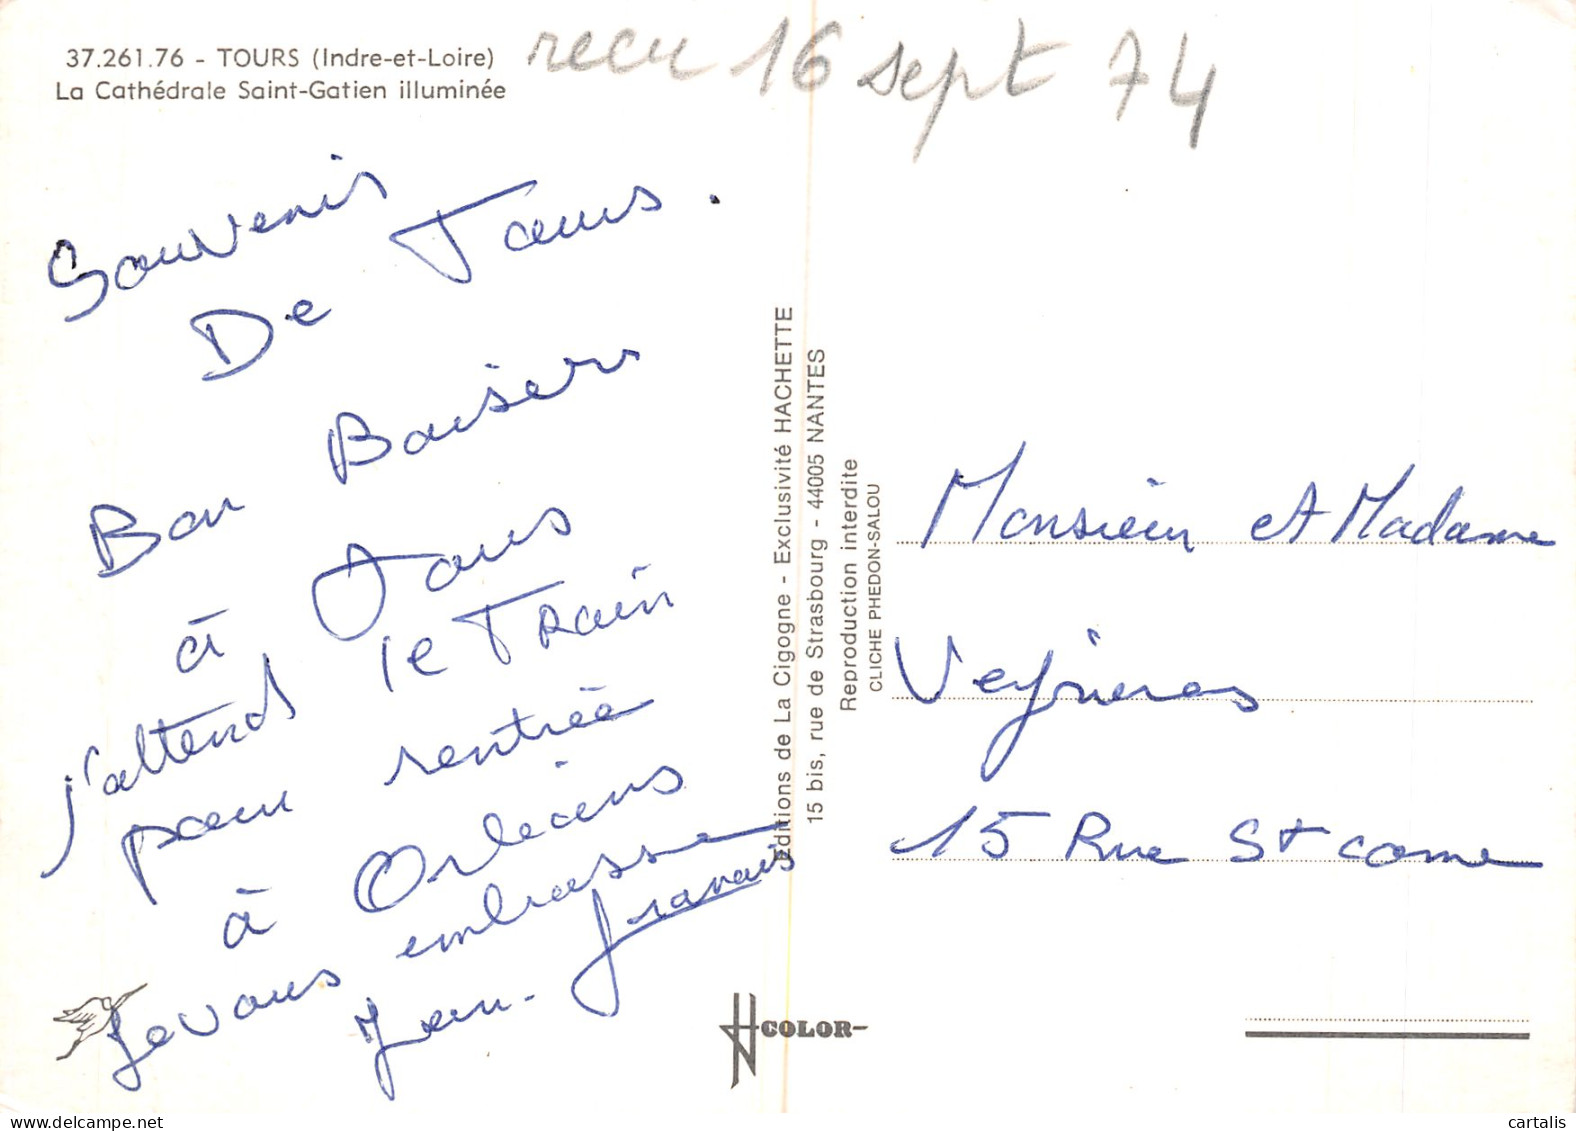 37.261.76 - TOURS (Indre-et-Loire)
La Cathédrale Saint-Gatien illuminée
recu 16 sept 74
Souvenir
De Tours.
Bon Baisers
à Tous
j'attend le Train
pour rentrée
à Orléans
Je vous embrasse
Jean-
Editions de La Cigogne - Exclusivité HACHETTE
15 bis, rue de Strasbourg - 44005 NANTES
Reproduction interdite
CLICHE PHEDON-SALOU
Monsieur et Madame
15 Rue St come
COLOR
cartalis